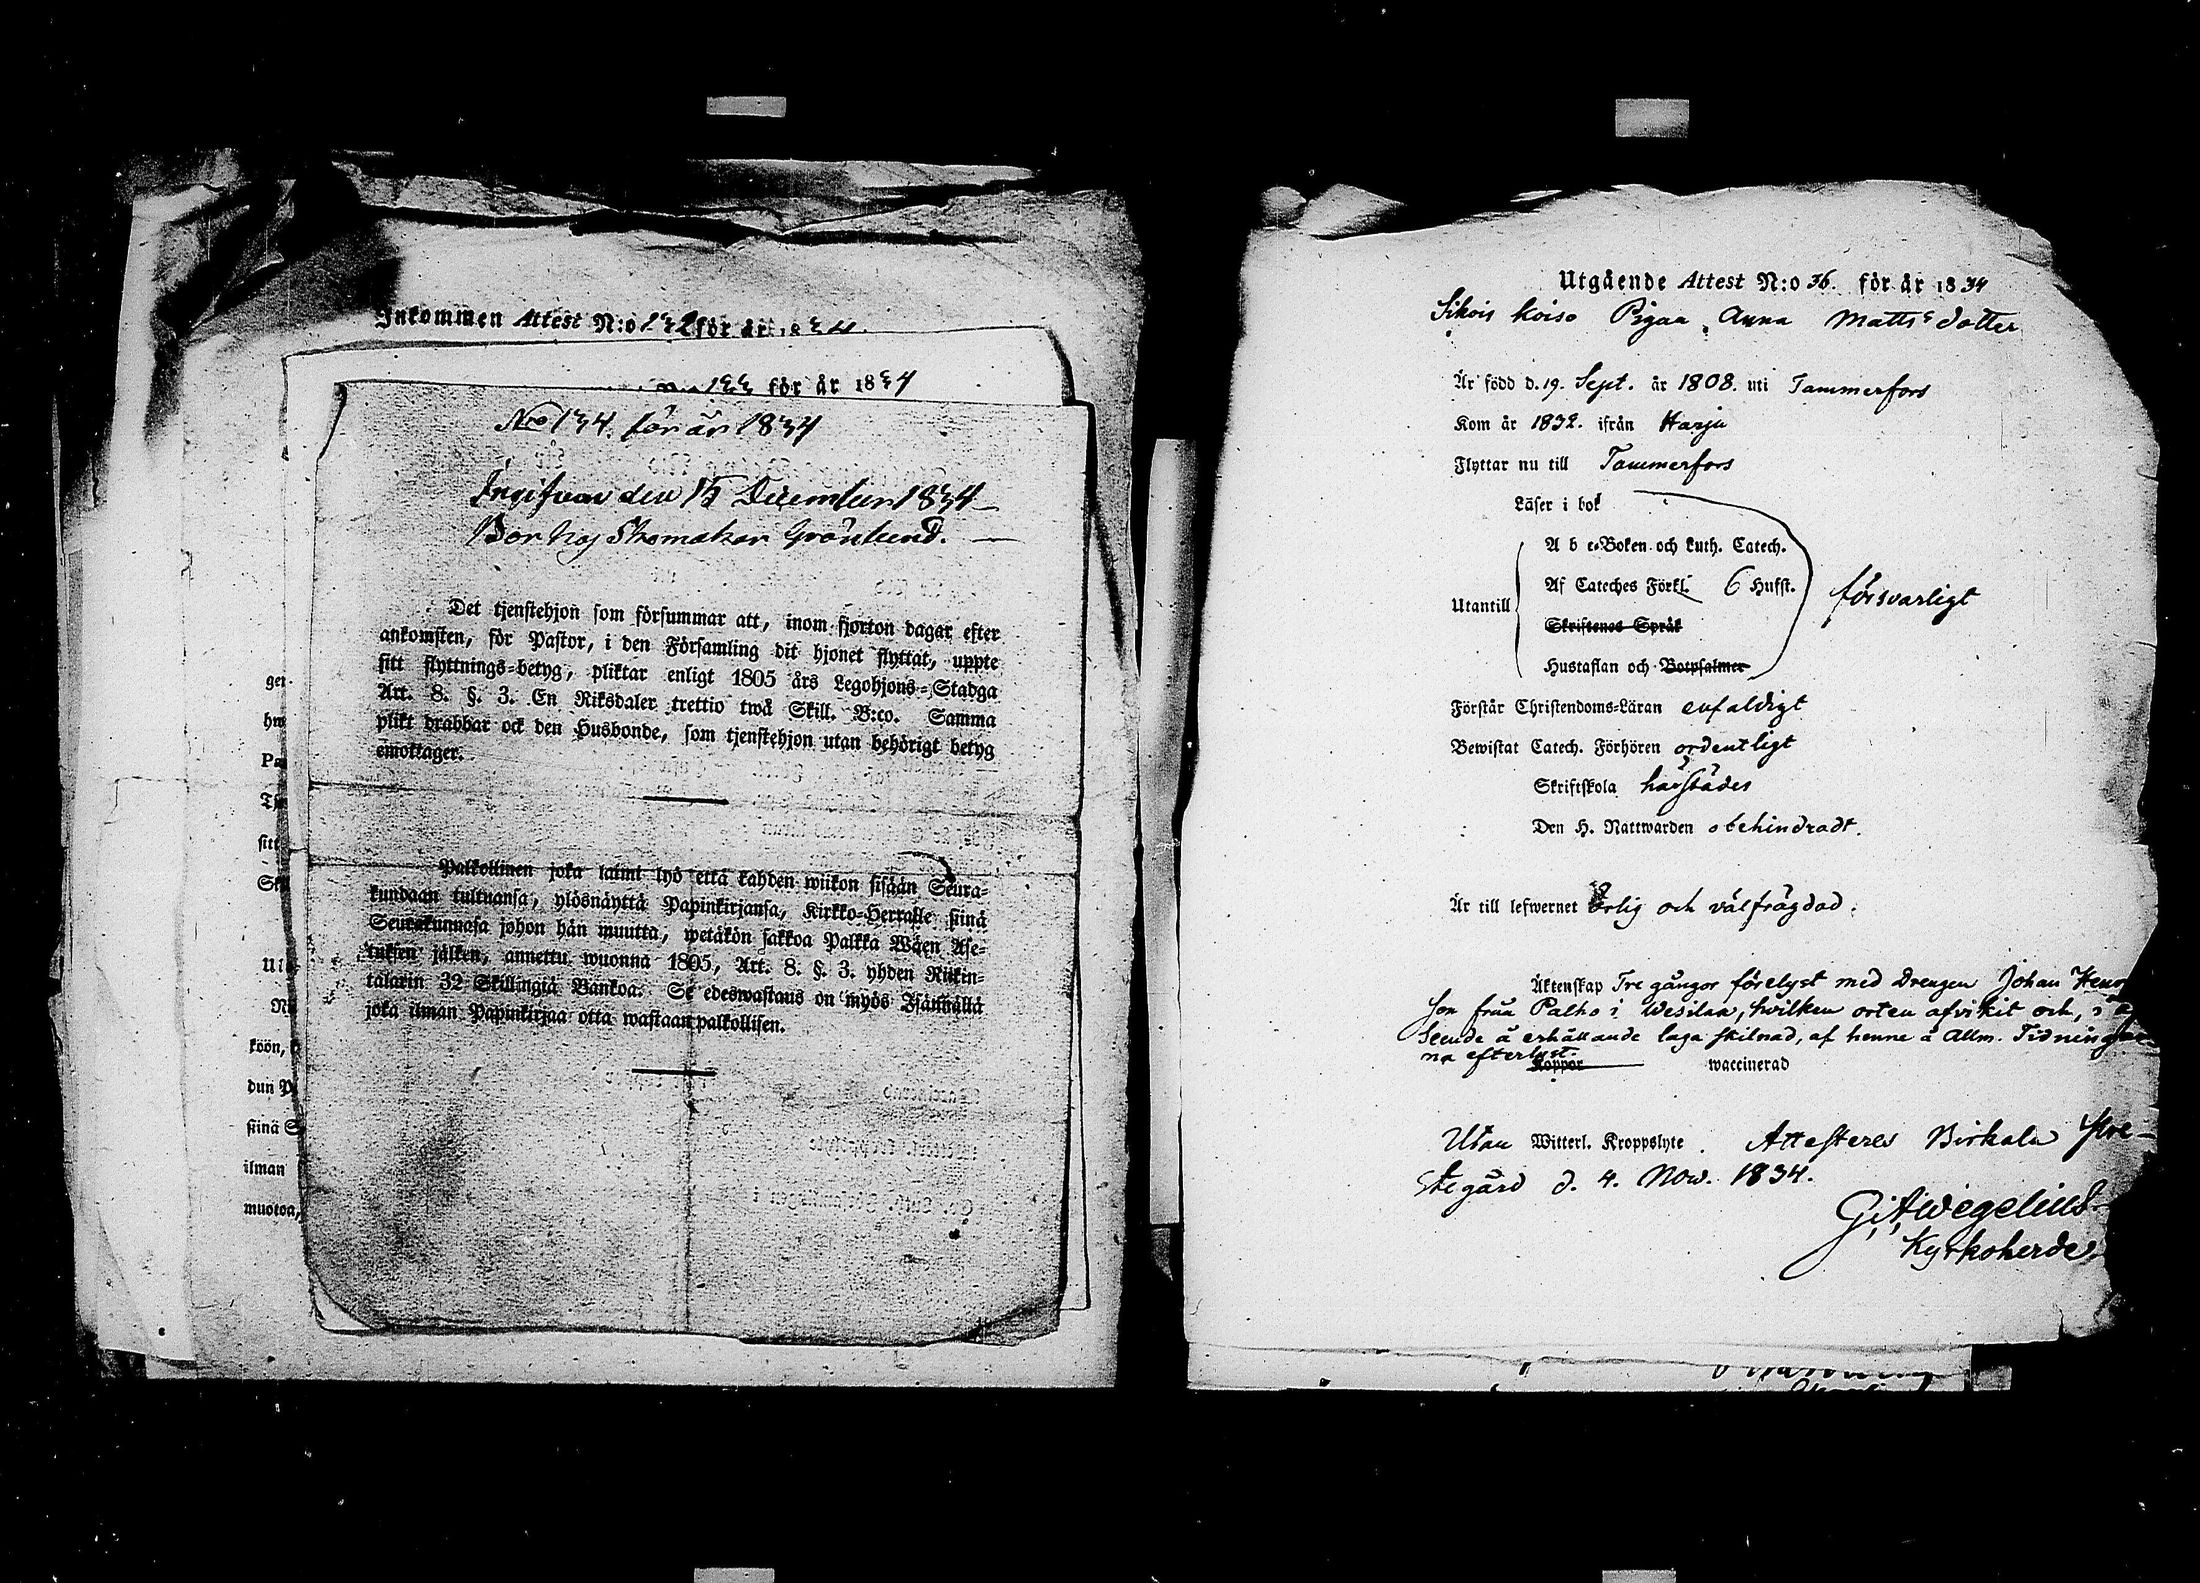 Inkommen Attest N:o 132 för år 1834.
133 för år 1834
Nro 134. för år 1834
Ingifvan den 15 December 1834
Bor hos Skomakar Grönlund.
Det tjenstehjon som försummar att, inom fjorton dagar efter
ankomsten, för Pastor, i den Församling dit hjonet flyttat, uppte
sitt flyttnings=betyg, pliktar enligt 1805 års Legohjons=Stadga
Art. 8. §. 3. En Riksdaler trettio twå Skill. B:co. Samma
plikt drabbar ock den Husbonde, som tjenstehjon utan behörigt betyg
emottager.
Palkollinen joka laimi lyö että kahden wiikon sisään Seura=
kundaan tultuansa, ylösnäyttä Papinkirjansa, Kirkko=Herralle siinä
Seurakunnasa johon hän muutta, wetäkön sakkoa Palkka Wäen Ase=
tuksen jälken, annettu wuonna 1805, Art. 8. §. 3. yhden Riikin=
talarin 32 Skillingiä Bankoa. Se edeswastaus on myös Isännällä
joka ilman Papinkirjaa otta wastaan palkollisen.
gei
hw
Pa
sitt
Sk
köön,
dun P
siinä S
ilman
muotoa,
Utgående Attest N:o 36. för år 1834
Pigan Anna Matts dotter
Är född d. 19. Sept. år 1808. uti Tammerfors
Kom år 1832. ifrån Harju
Flyttar nu till Tammerfors
Läser i bok
A b c=Boken och Luth. Catech.
Af Cateches Förkl. 6 Hufst.
Utantill
försvarligt
Skriftenes Språk
Hustaflan och Botpsalmer
Förstår Christendoms=Läran enfaldigt
Bewistat Catech. Förhören ordentligt
Skriftskola härstädes
Den H. Nattwarden obehindradt.
Är till lefwernet ärlig och välfrägdad.
Äktenskap Tre gångor förelyst med Drengen Johan
son från Palho i Wesilax, hvilken orten afvikit och, i
seende å erhållande laga skilnad, af henne å Allm. Tidningar
na efterlyst.
Koppor waccinerad
Utan Witterl. Kroppslyte. Attesteres Birkala Pre-
stegård d. 4. Now. 1834.
G; A Wegelius
Kyrkoherde.